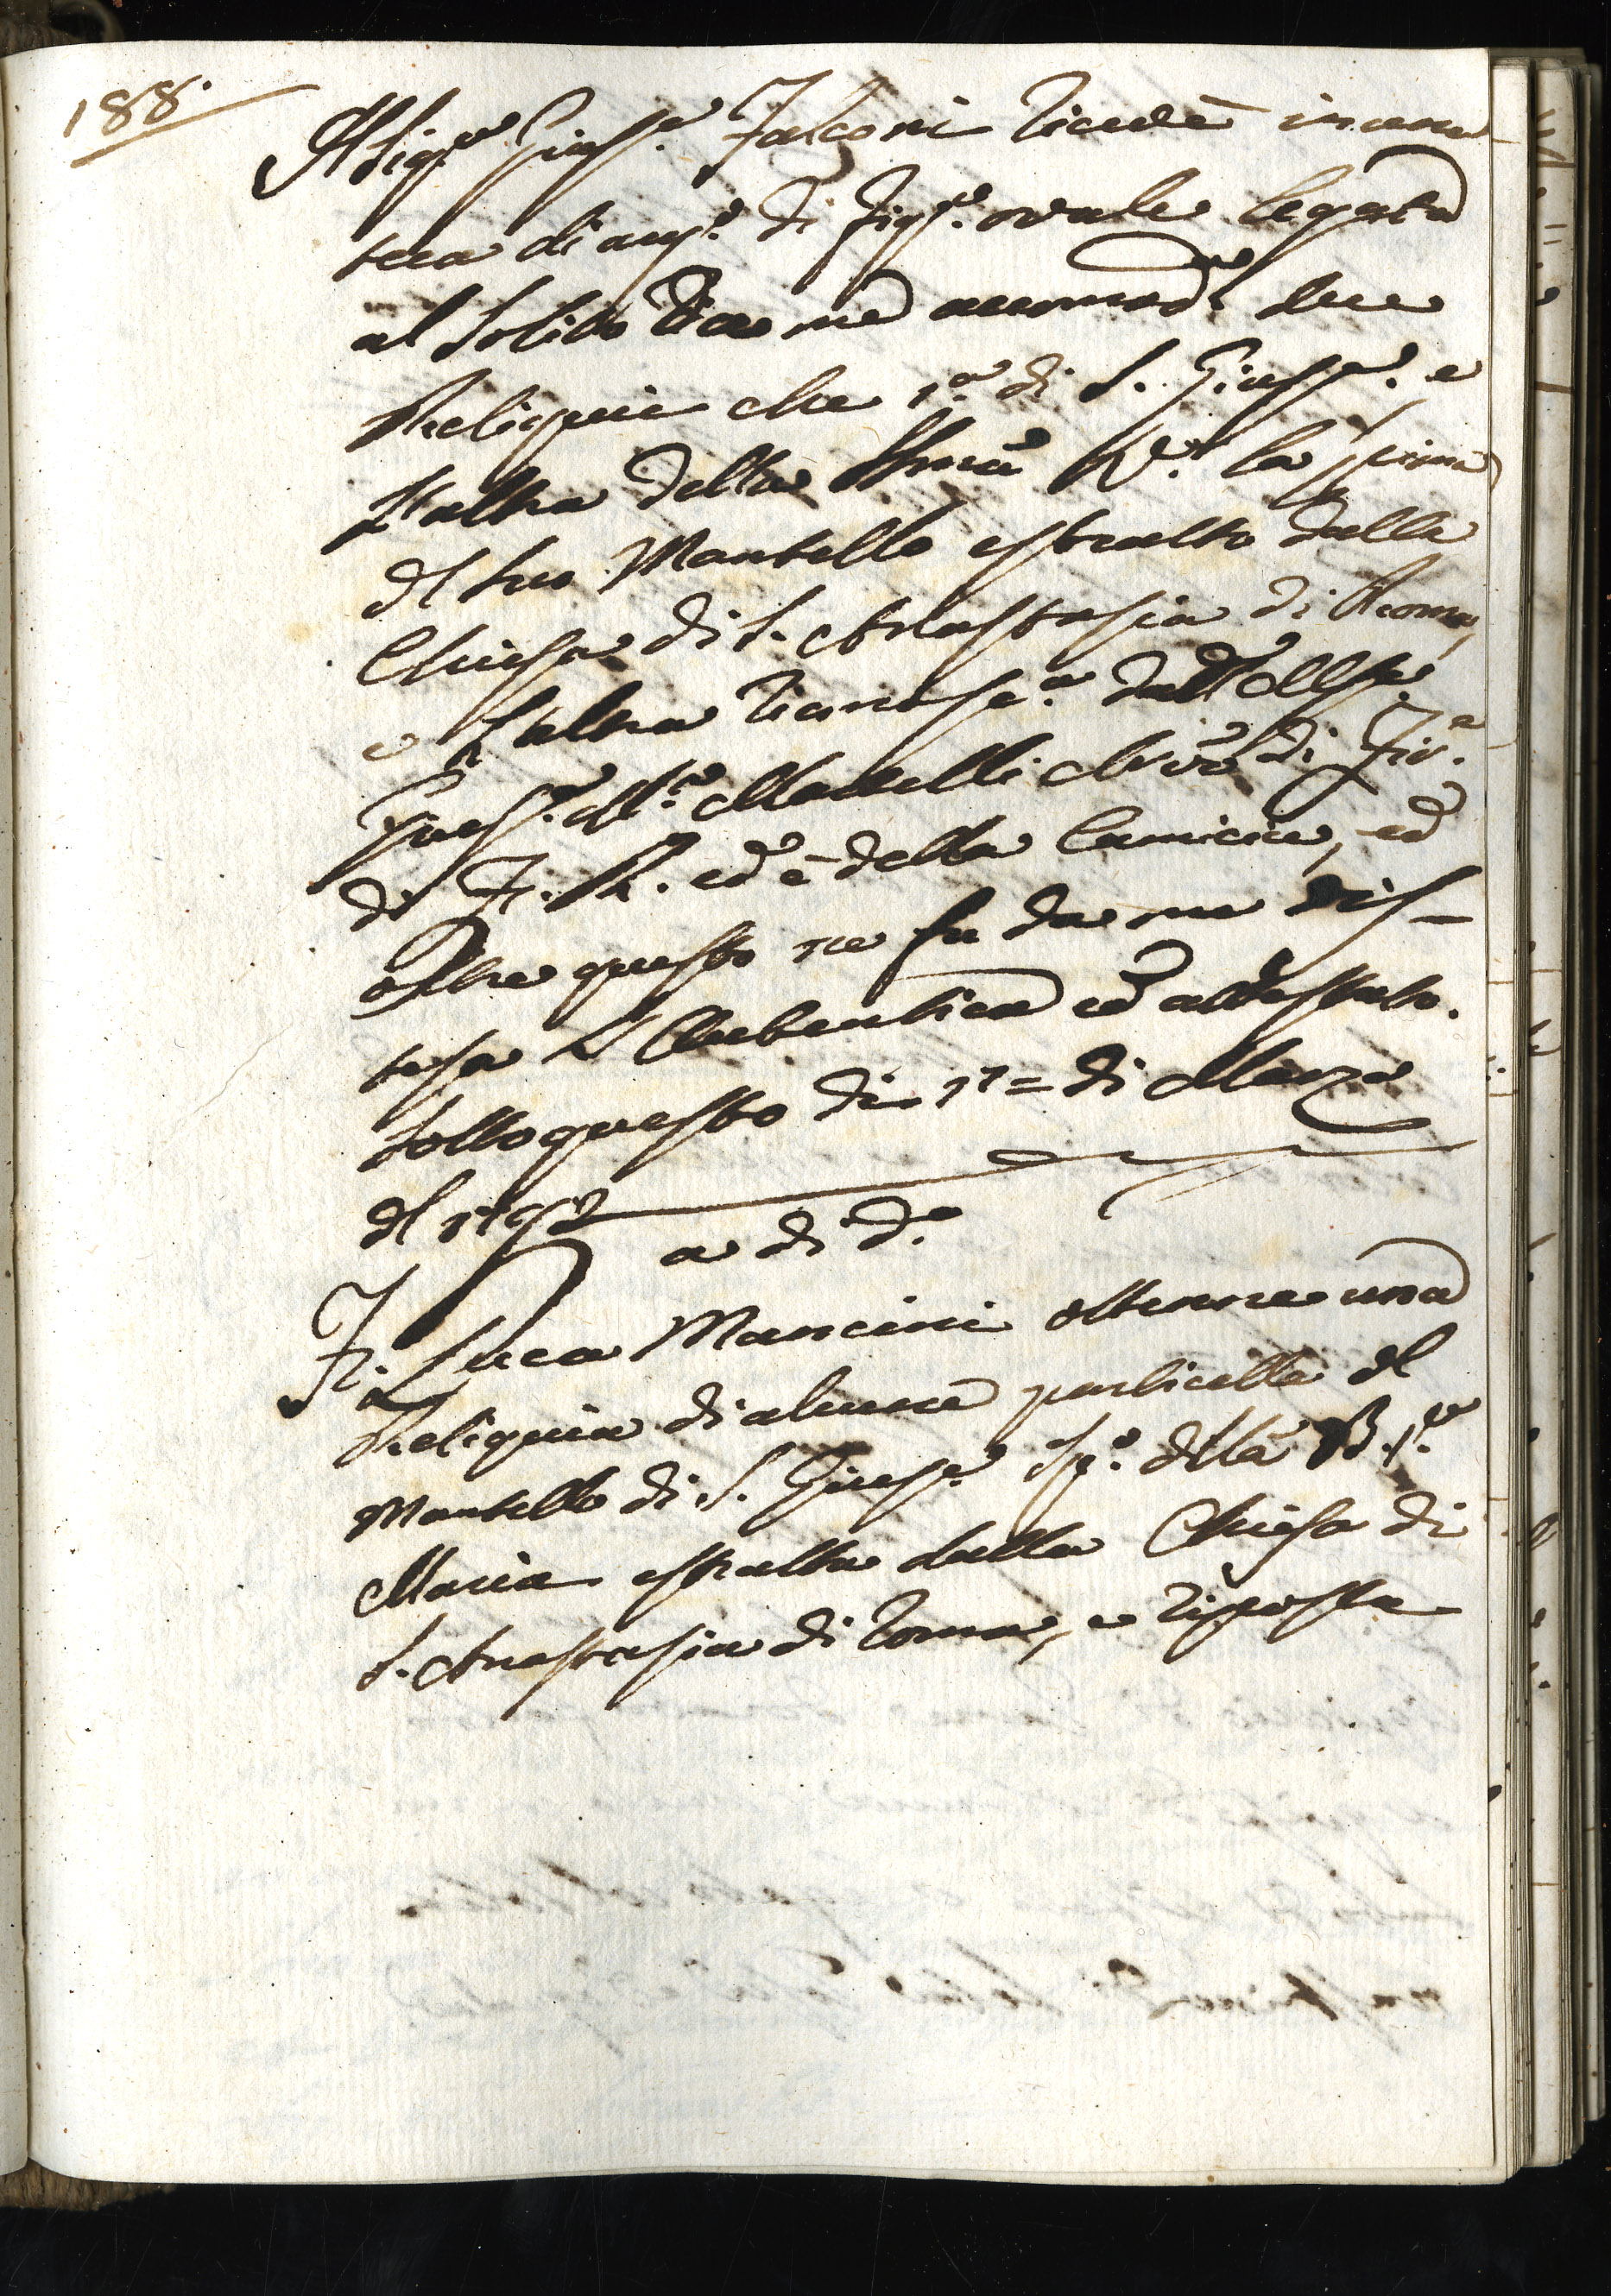 188.
Il Sig.re Gius.e Falconi ricevè in una
teca di arg.o di fig.a ovale legata
al solito da me accomod.e due
Reliquie che 1.a di S. Gius.e e
l'altra della Ssma V.e la prima
del suo Mantello estratto dalla
Chiesa di S. Anastasia di Roma,
e l'altra riconosc.a dall'Illse
Gius.e M.a Martelli Arciv.o di Fir.e
di F. M. ed è della Camicia, ed
oltre questo ne fu da me dis-
tesa l'Autentica ed attestato.
Sotto questo di 17 = di Marzo
del 1792
a di d.o
Fr. Luca Mancini ottenne una
Reliquia di alcune particelle del
Mantello di S. Gius.e Sp.o della B. V.e
Maria estratta dalla Chiesa di
S. Anastasia di Roma, e riposta